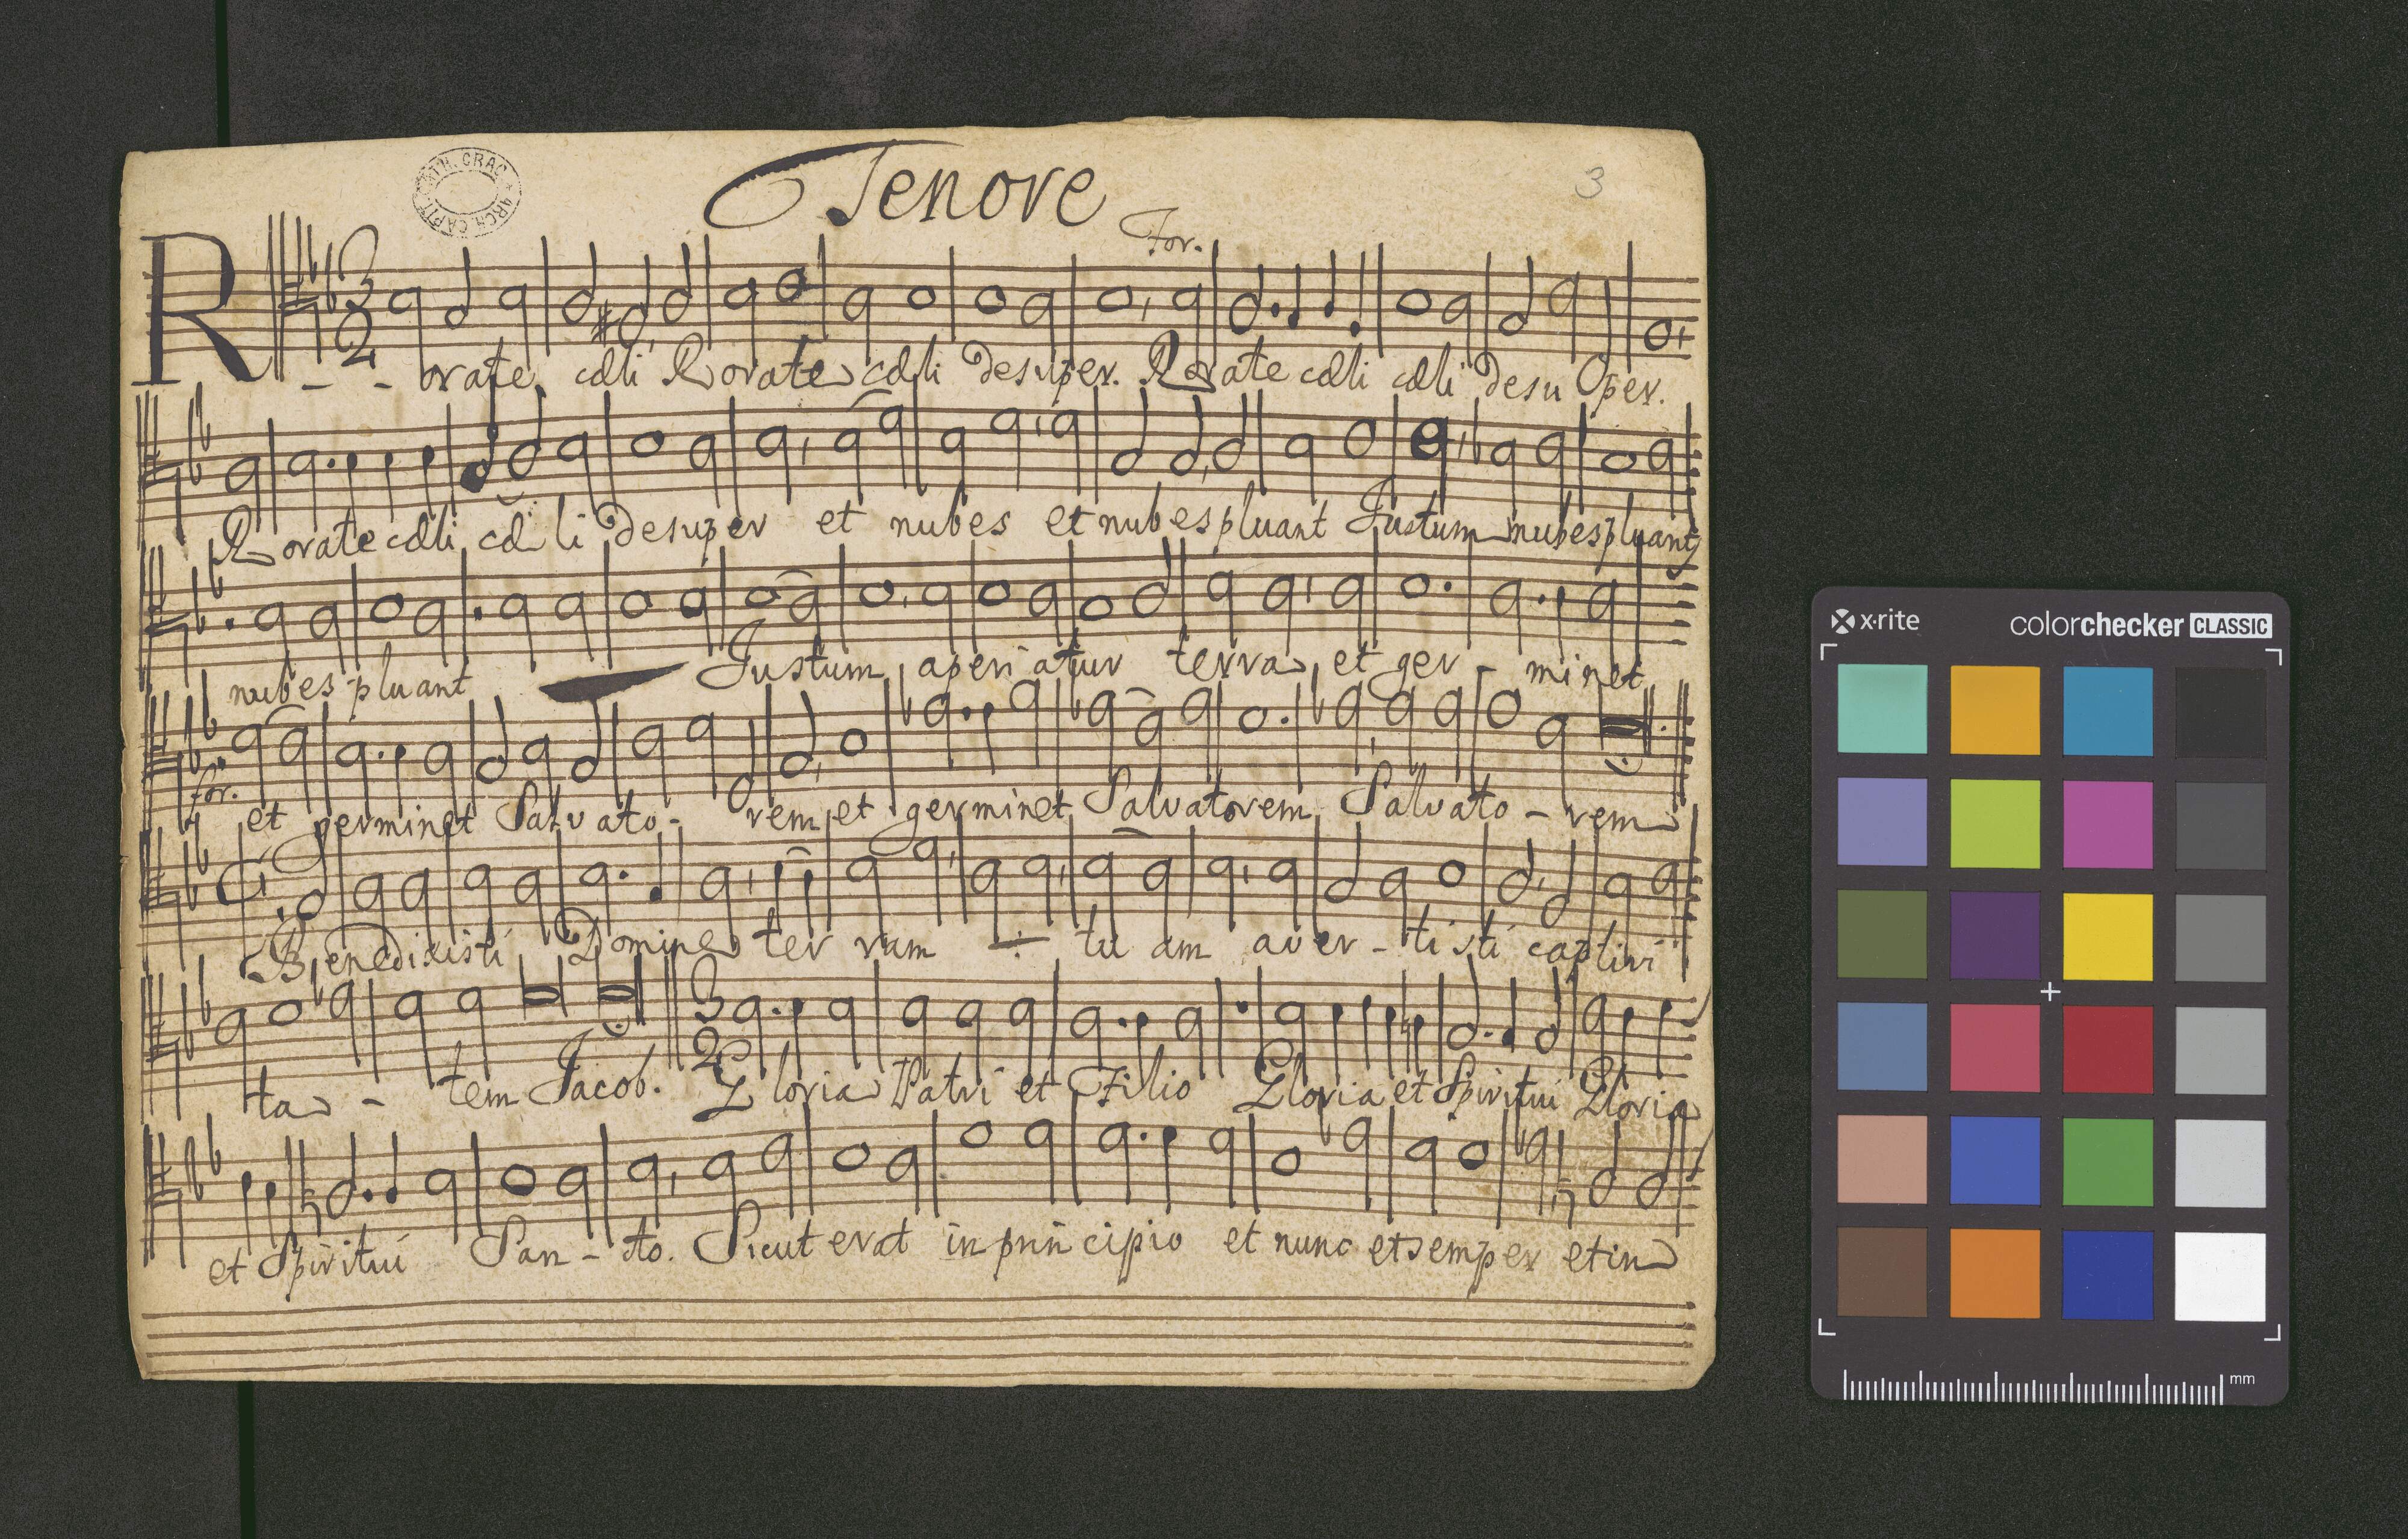 ARCH. CAPIT. CATH. CRAC.
Tenore
3
For.
R - - orate cæli Rorate cæli desuper. Rorate cæli cæli desu per.
Rorate cæli cæ li desuper et nubes et nubes pluant Justum nubes pluant
nubes pluant Justum aperiatur terra et ger - minet
for.
et germinet Salvato - rem et germinet Salvatorem Salvato - rem
Benedixisti Domine ter ram ·/· tu am aver - tisti captivi
ta - tem Jacob. Gloria Patri et Filio Gloria et Spiritui Gloria
et Spiritui San - cto. Sicut erat in prin cipio et nunc et semper et in
x·rite
colorchecker CLASSIC
mm